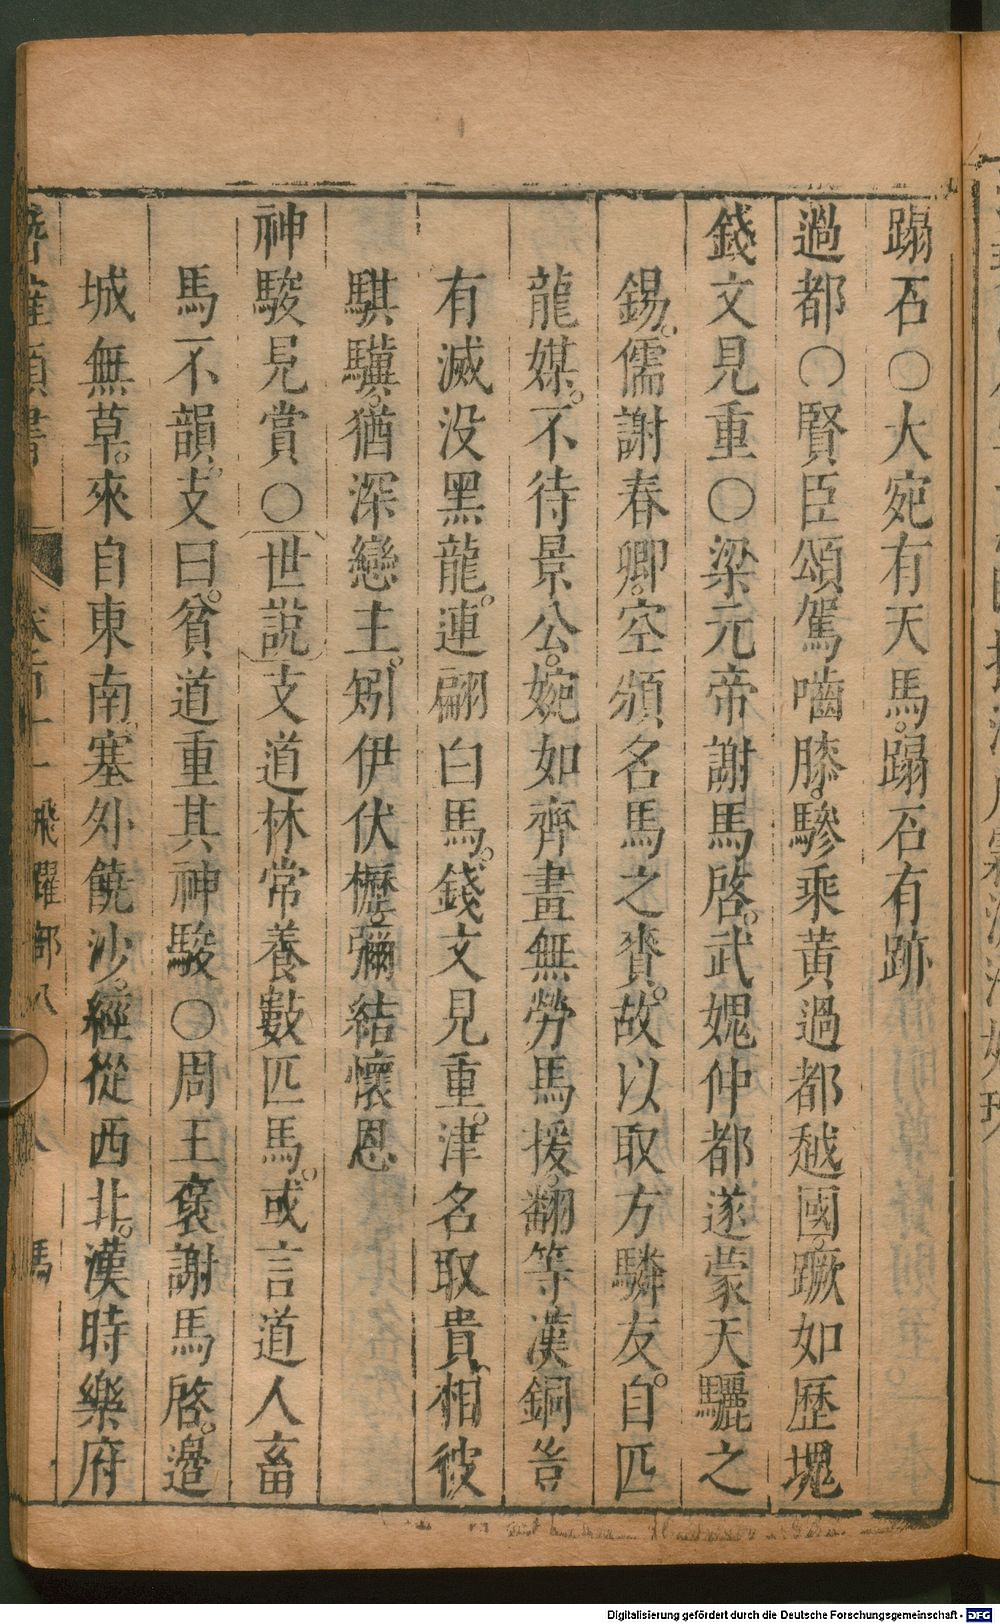 蹋石〇大宛有天馬。蹋石有跡
過都〇賢臣頌駕嚙膝。驂乘黃過都越國。蹶如歷塊
錢文見重〇梁元帝謝馬啓。武媿仲都遂蒙天驪之
錫。儒謝春卿。空頒名馬之賚。故以取方驎友。自匹
龍媒。不待景公。婉如齊畫無勞馬援。翻等漢銅告
有滅没黑龍。連翩白馬。錢文見重。津名取貴。相彼
騏驥。猶深戀主。矧伊伏櫪。彌結懷恩
神駿見賞〇世説支道林常養數匹馬。或言道人畜
馬不韻。支曰。貧道重其神駿〇周王褒謝馬啓。邉
城無草。來自東南。塞外饒沙。經從西北。漢時樂府
類書
飛躍部八 八 馬
Digitalisierung gefördert durch die Deutsche Forschungsgemeinschaft - DFG